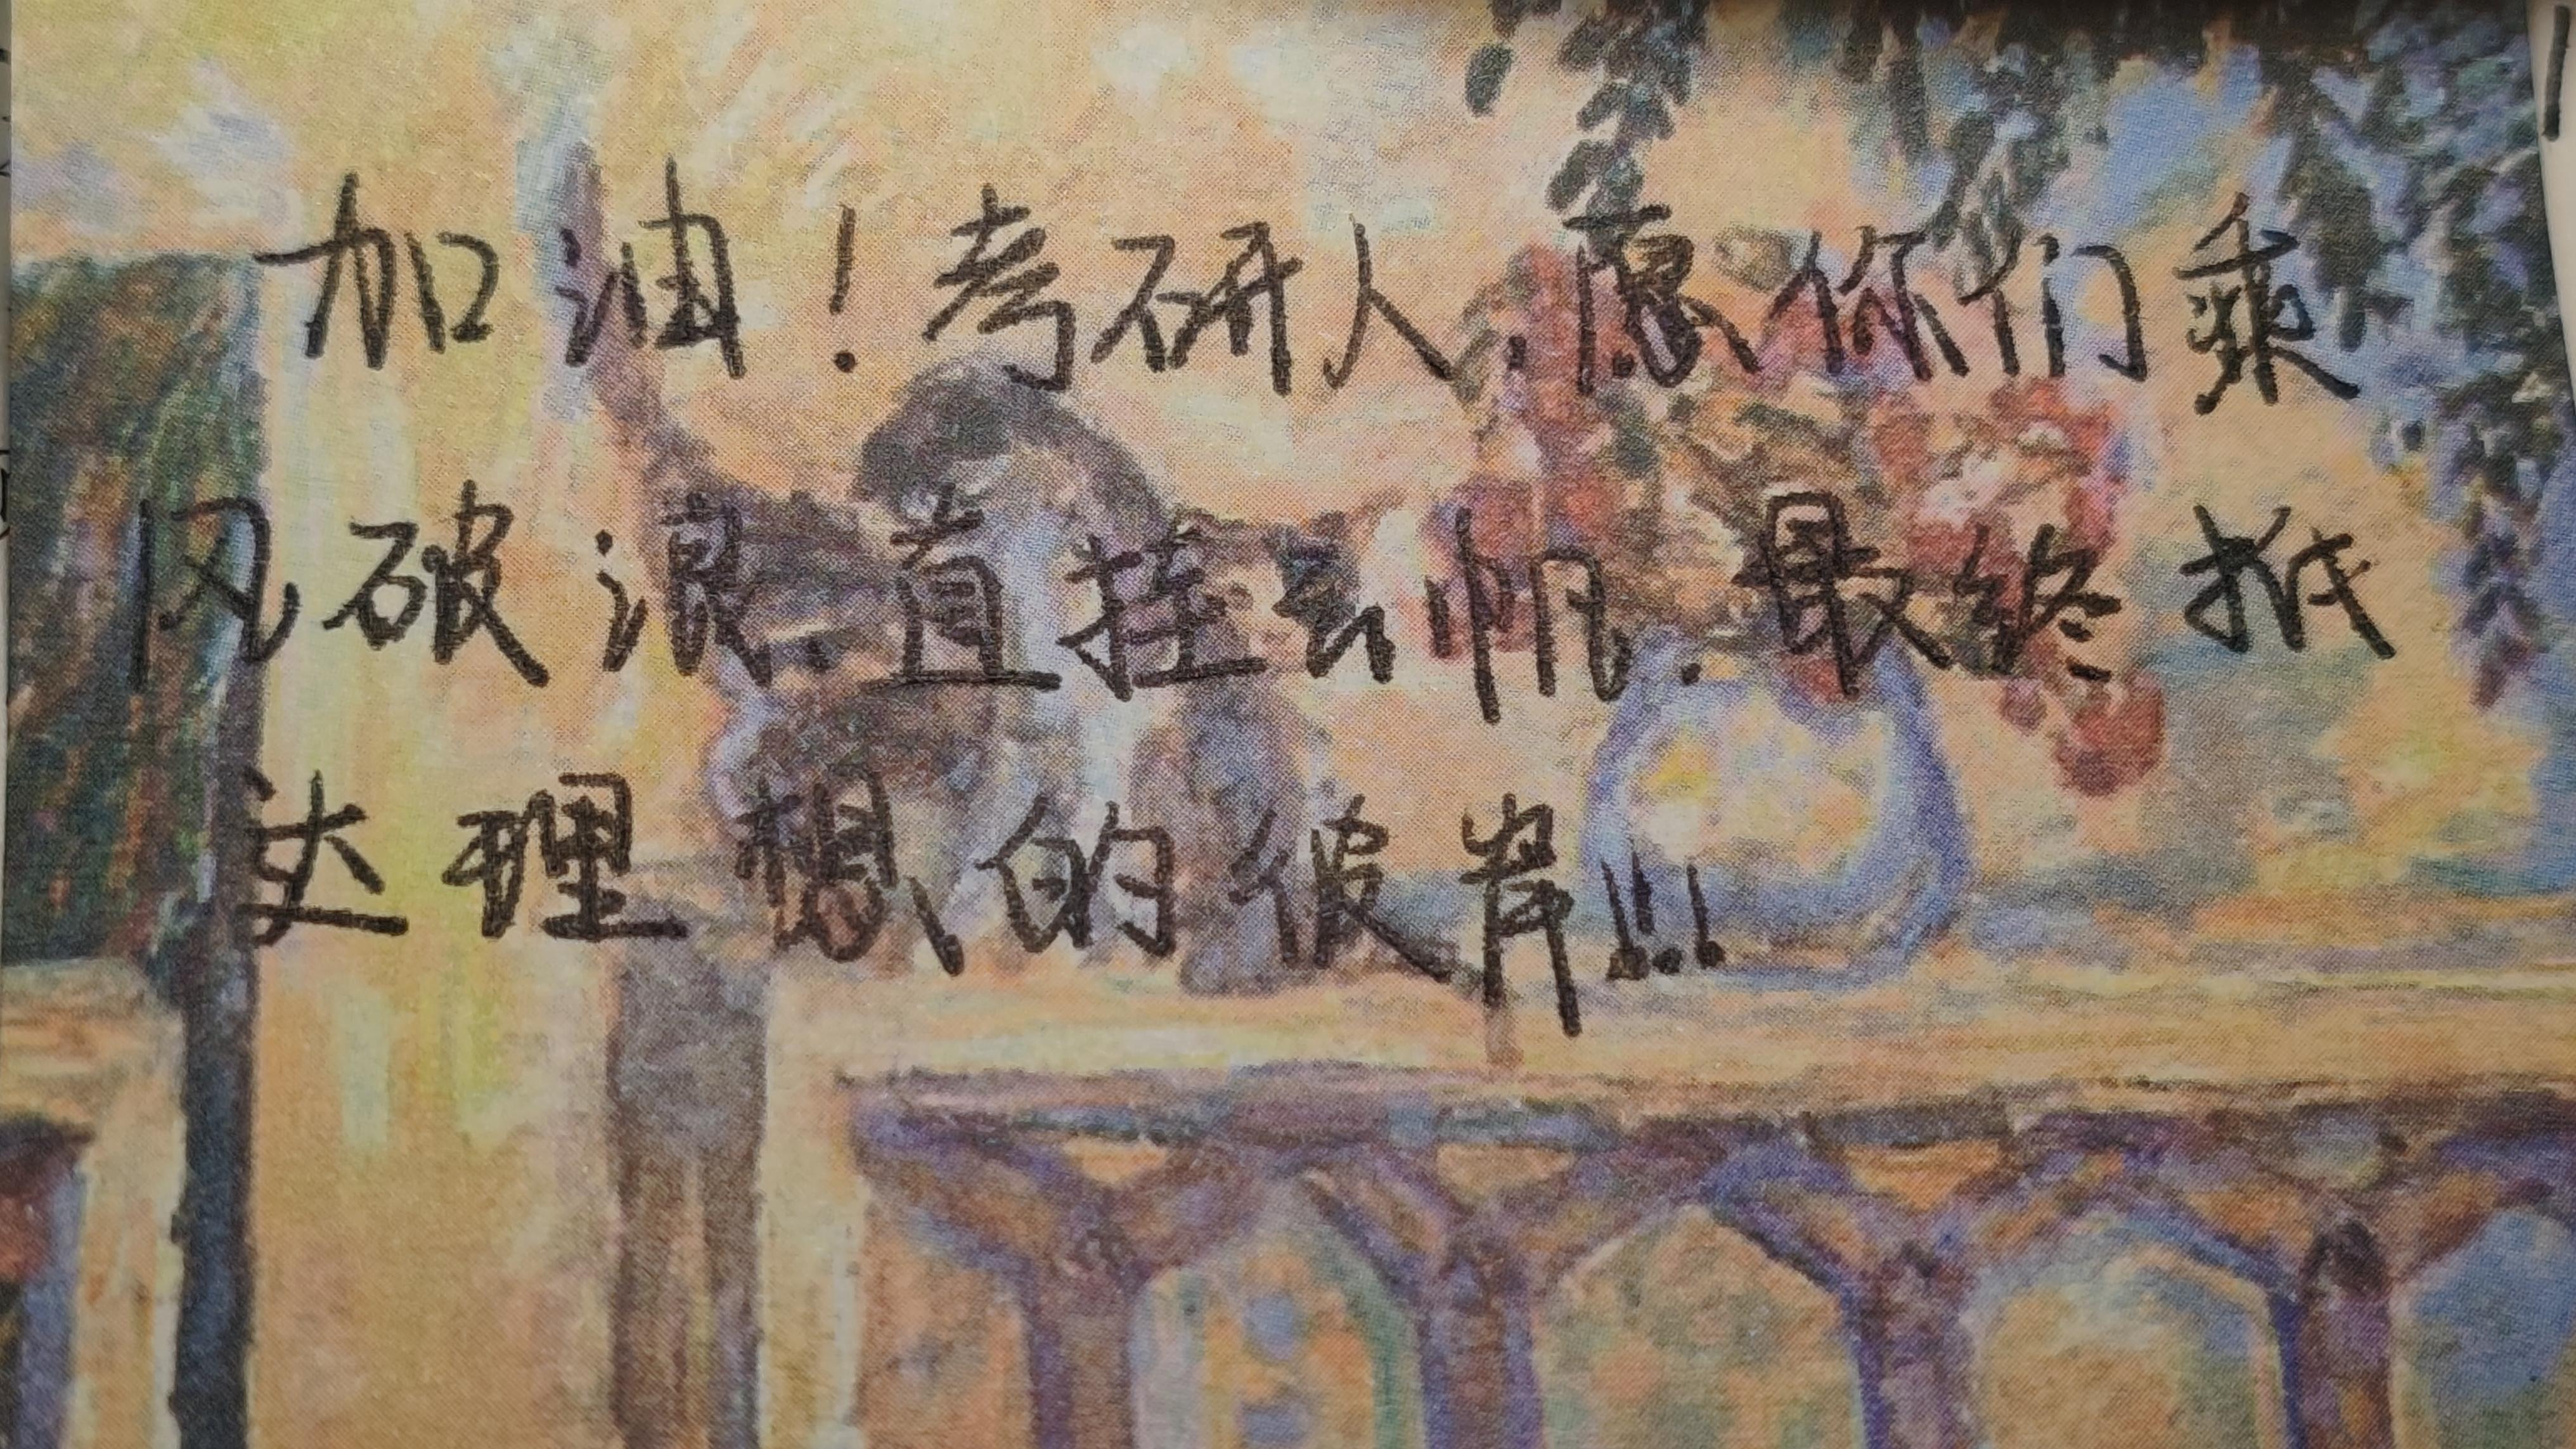 加油！考研人，愿你们乘
风破浪 直挂云帆，最终抵
达理想的彼岸！！！